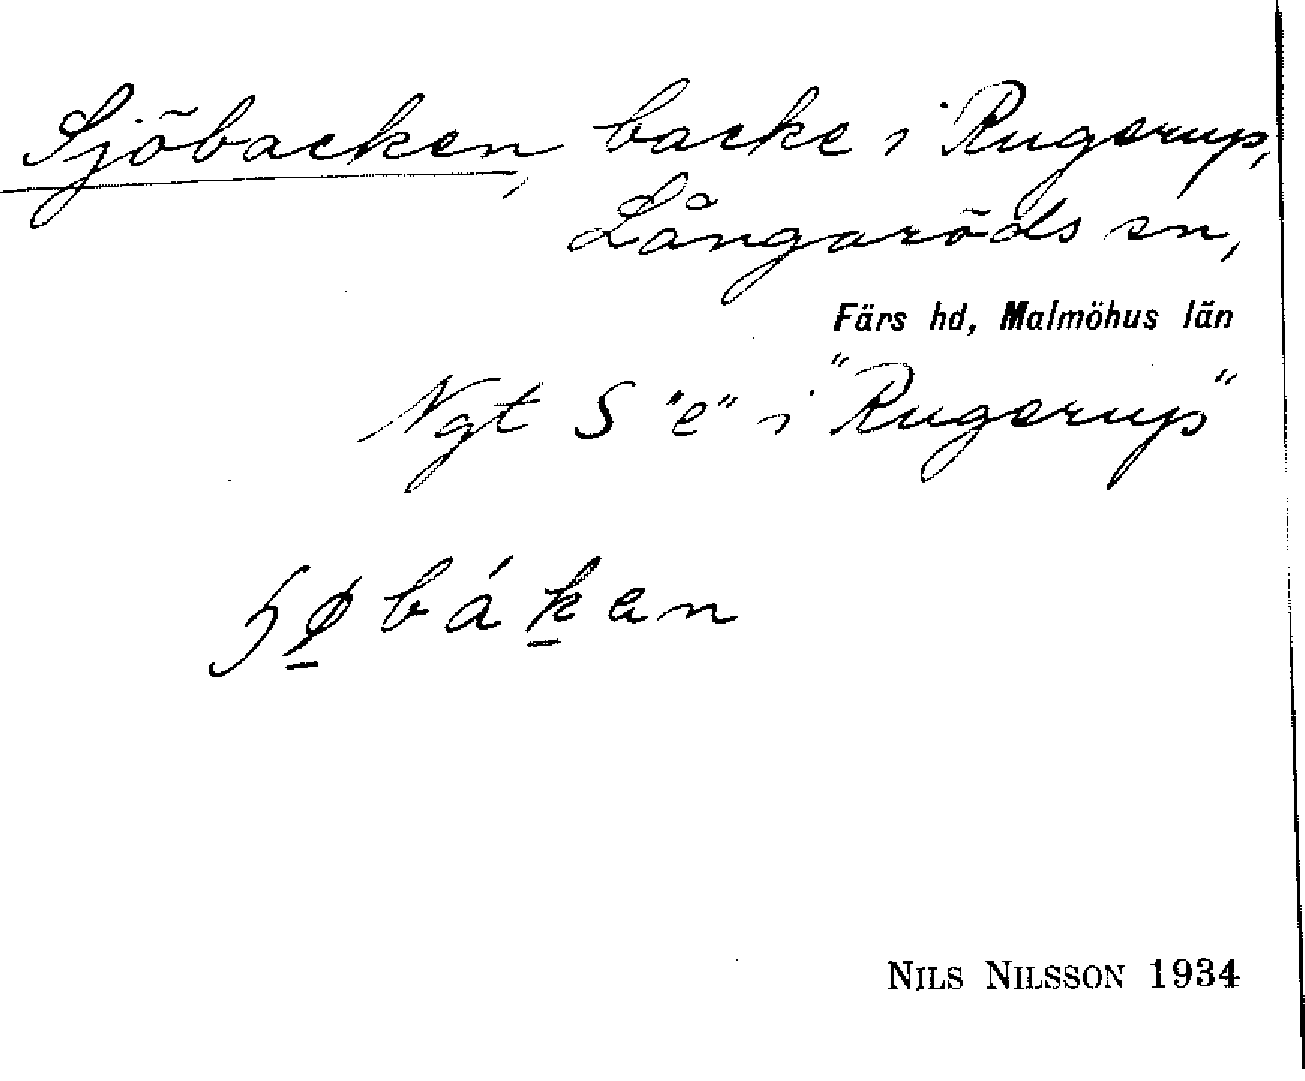 Sjöbacken, backe i Rugerup,
Långaröds sn,
Färs hd, Malmöhus län
Ngt S "e" i "Rugerup"
NILS NILSSON 1934